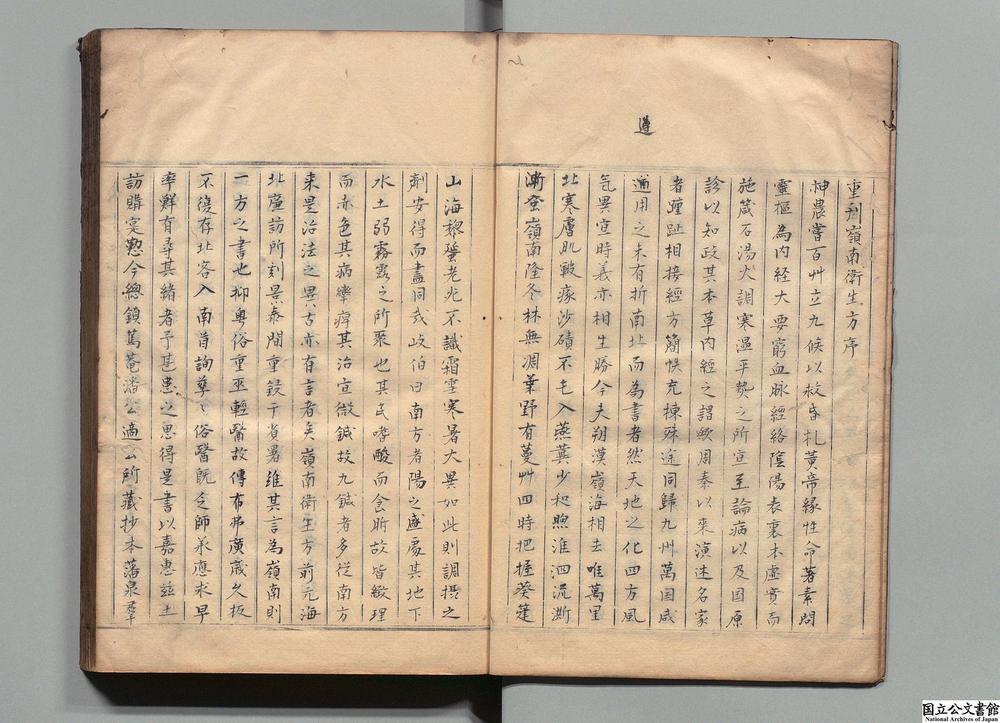 重刊嶺南衛生方序
神農嘗百艸立九候以救昏札黄帝縁性命著素問
靈樞為内経大要窮血脉經絡陰陽表裏本虚實而
施箴石湯火調寒温平贄之所宣至論病以及国原
診以知政其本草内經之謂歟周秦以来演述名家
者踵趾相接經方簡帙充棟殊途同歸九州萬国咸
適用之未有折南北而為書者然天地之化四方風
气異宜時義亦相生勝今夫朔漠嶺海相去唯萬里
北寒膚肌皸瘃沙磧不毛入燕冀少和煦淮泗流澌
漸奎嶺南隆冬林無凋葉野有蔓艸四時把握葵箑
山海黎蜑老死不識霜雪寒暑大異如此則調摂之
劑安得而盡同哉岐伯曰南方者陽之盛處其地下
水土弱霧露之所聚也其民嗜酸而食胕故皆緻理
而赤色其病攣痺其治宜微鍼故九鍼者多従南方
来是治法之異古亦有言者矣嶺南衛生方前元海
北廉訪所刻景泰間重鋟于省署維其言為嶺南則
一方之書也抑粤俗重巫輕醫故傳布弗廣歳久板
不復存北客入南首詢孳〻俗醫既乏師承應求早
率鮮有尋其緒者予甚患之思得是書以嘉惠茲土
訪購寔懃今總鎮篤菴潘公適以所藏抄本藩泉羣
遵
国立公文書館
National Archives of Japan